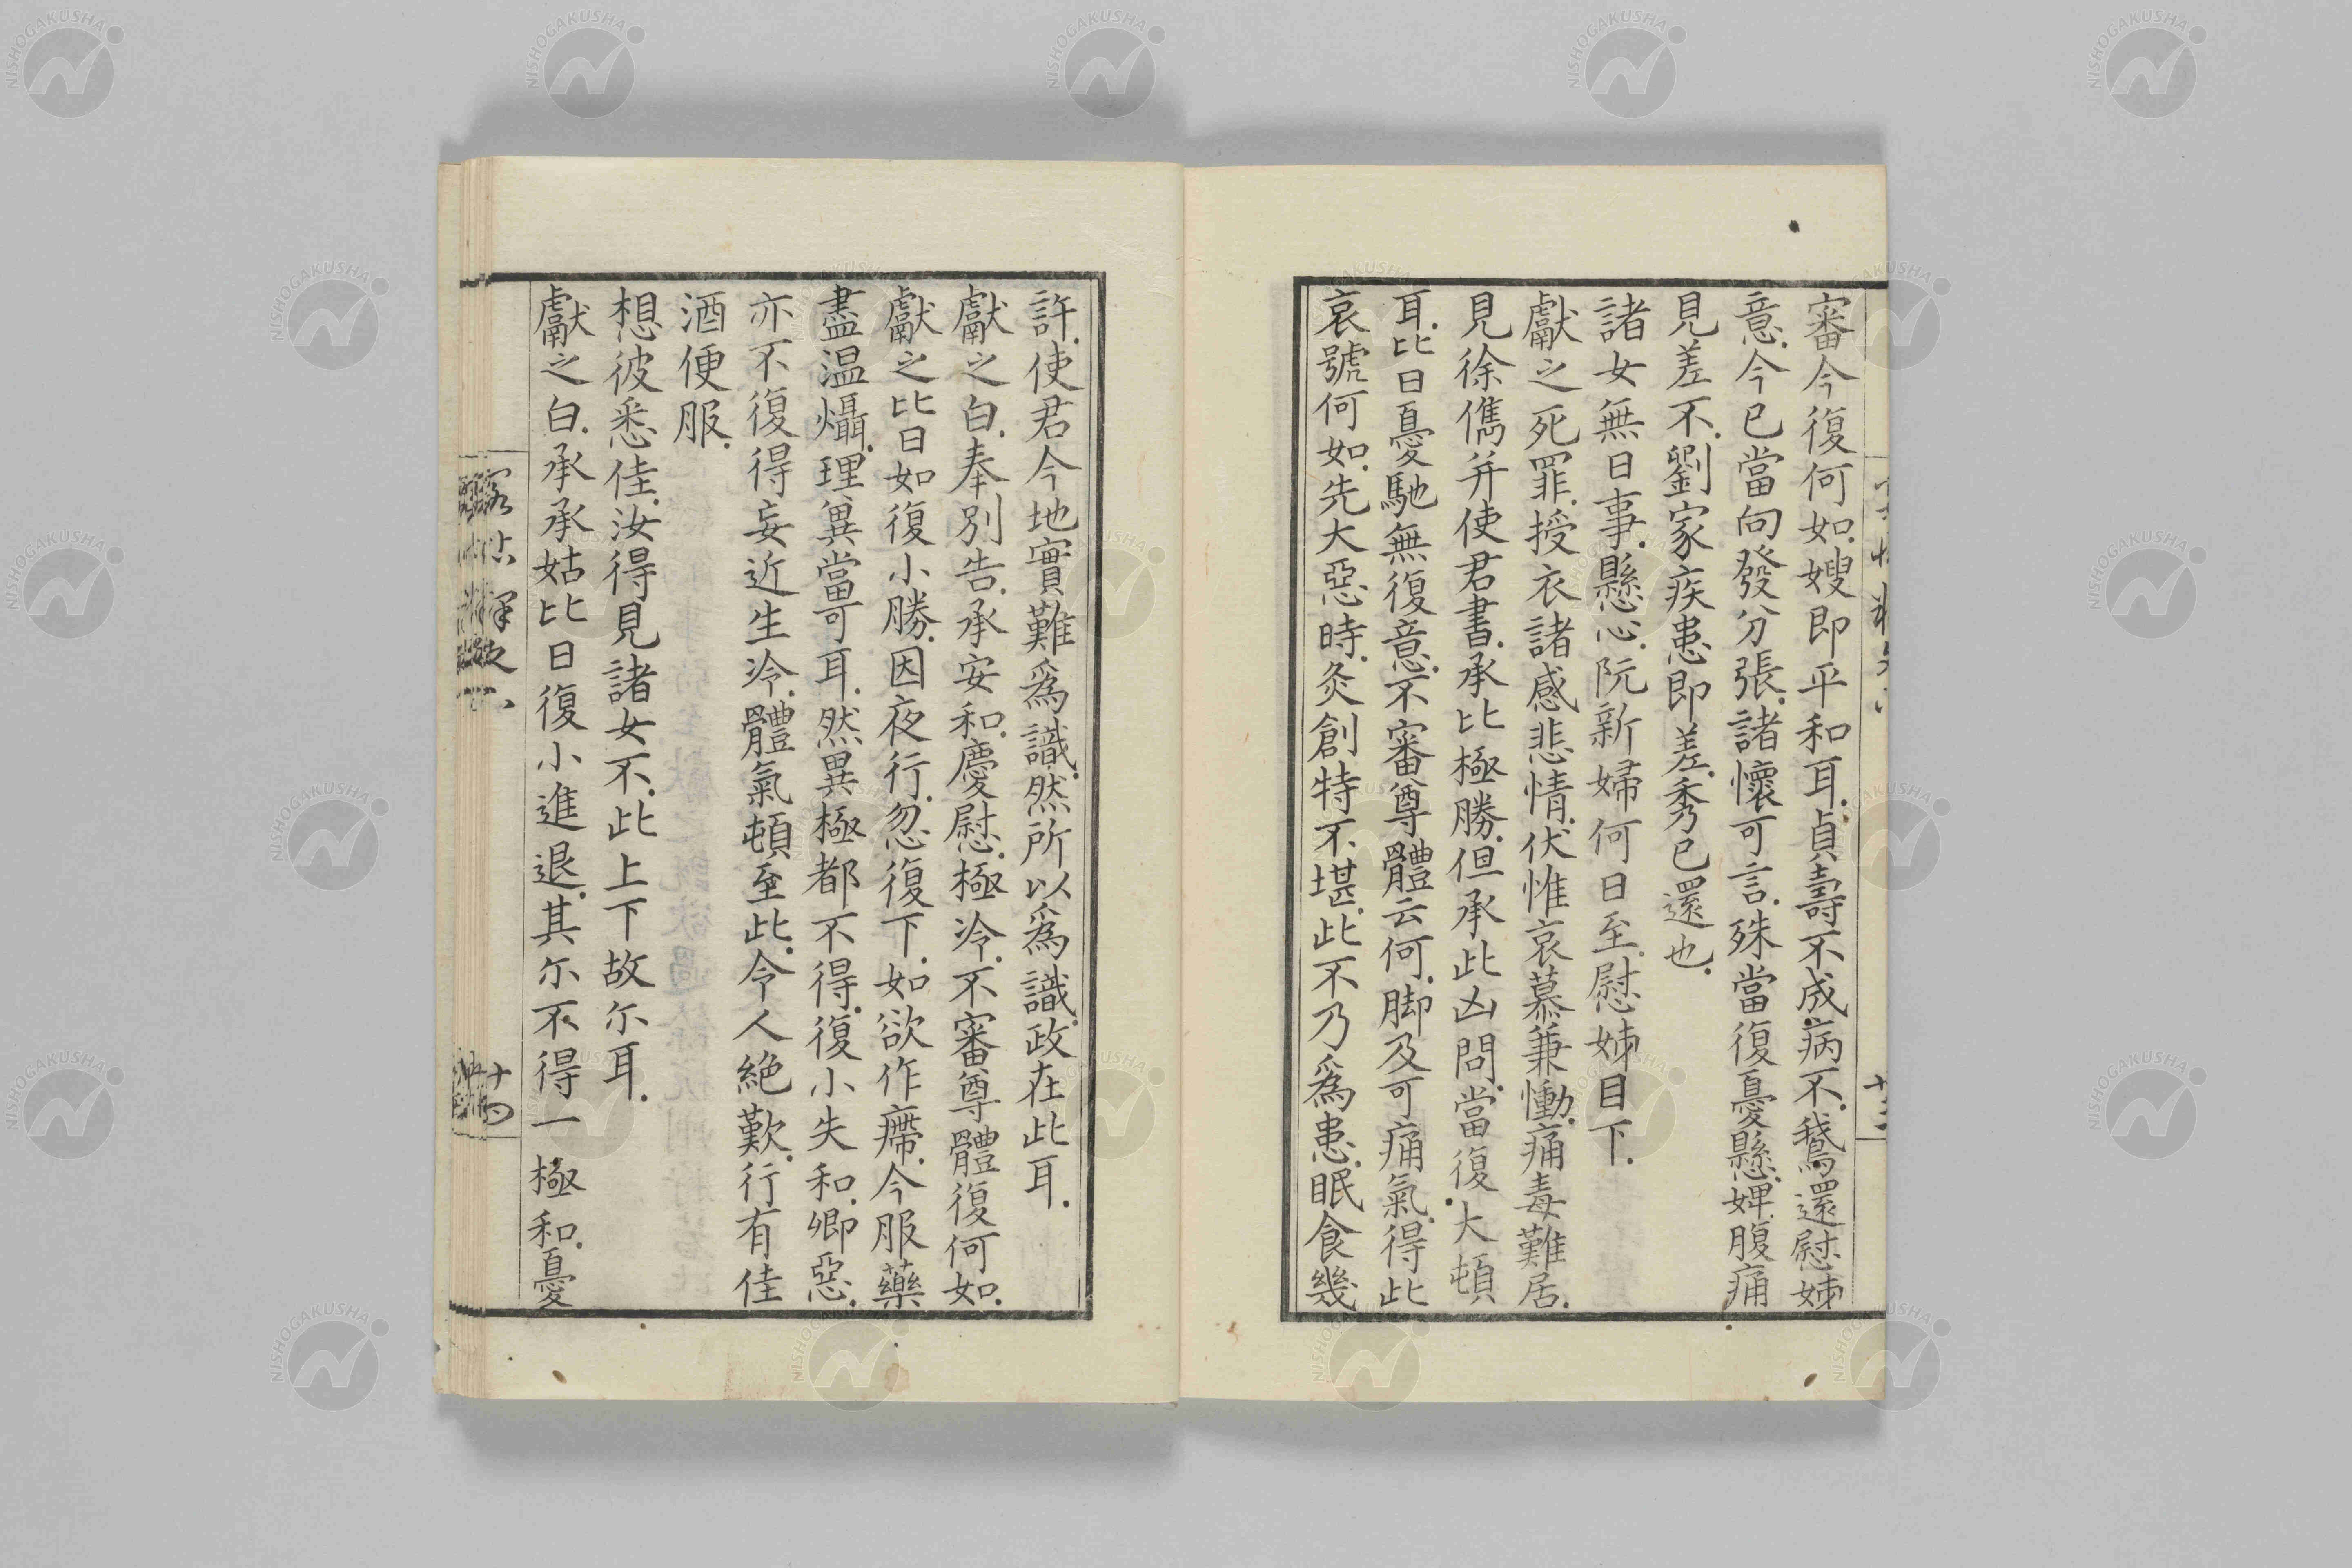 審今復何如.嫂即平和耳.貞壽不成.病不.鵝還慰姊
意.今已當向發分張.諸懷可言.殊當復憂懸.婢腹痛
見差不.劉家疾患即差.秀已還也.
諸女無日事.懸心.阮新婦何日至.慰姊目下.
獻之死罪.授衣諸感悲情.伏惟哀慕兼慟.痛毒難居.
見徐儁并使君書.承比極勝.但承此凶問.當復大頓
耳.比日憂馳無復意.不審尊體云何.脚及可痛氣.得此
哀號何如.先大惡時.灸創特不堪.此不乃爲患.眠食幾
許.使君今地實難爲識.然所以爲識.政在此耳.
獻之白.奉別告.承安和.慶慰.極冷.不審尊體復何如.
獻之比日如復小勝.因夜行.忽復下.如欲作㿃.今服藥
盡温燥.理冀當可耳.然異極都不得.復小失和.卿惡.
亦不復得妄近生冷.體氣頓至此.令人絶歎.行有佳
酒便服.
想彼悉佳.汝得見諸女不.此上下故尒耳.
獻之白.承承姑比日復小進退.其尒不得一極和.憂
閣帖釋文 十四
NISHOGAKUSHA